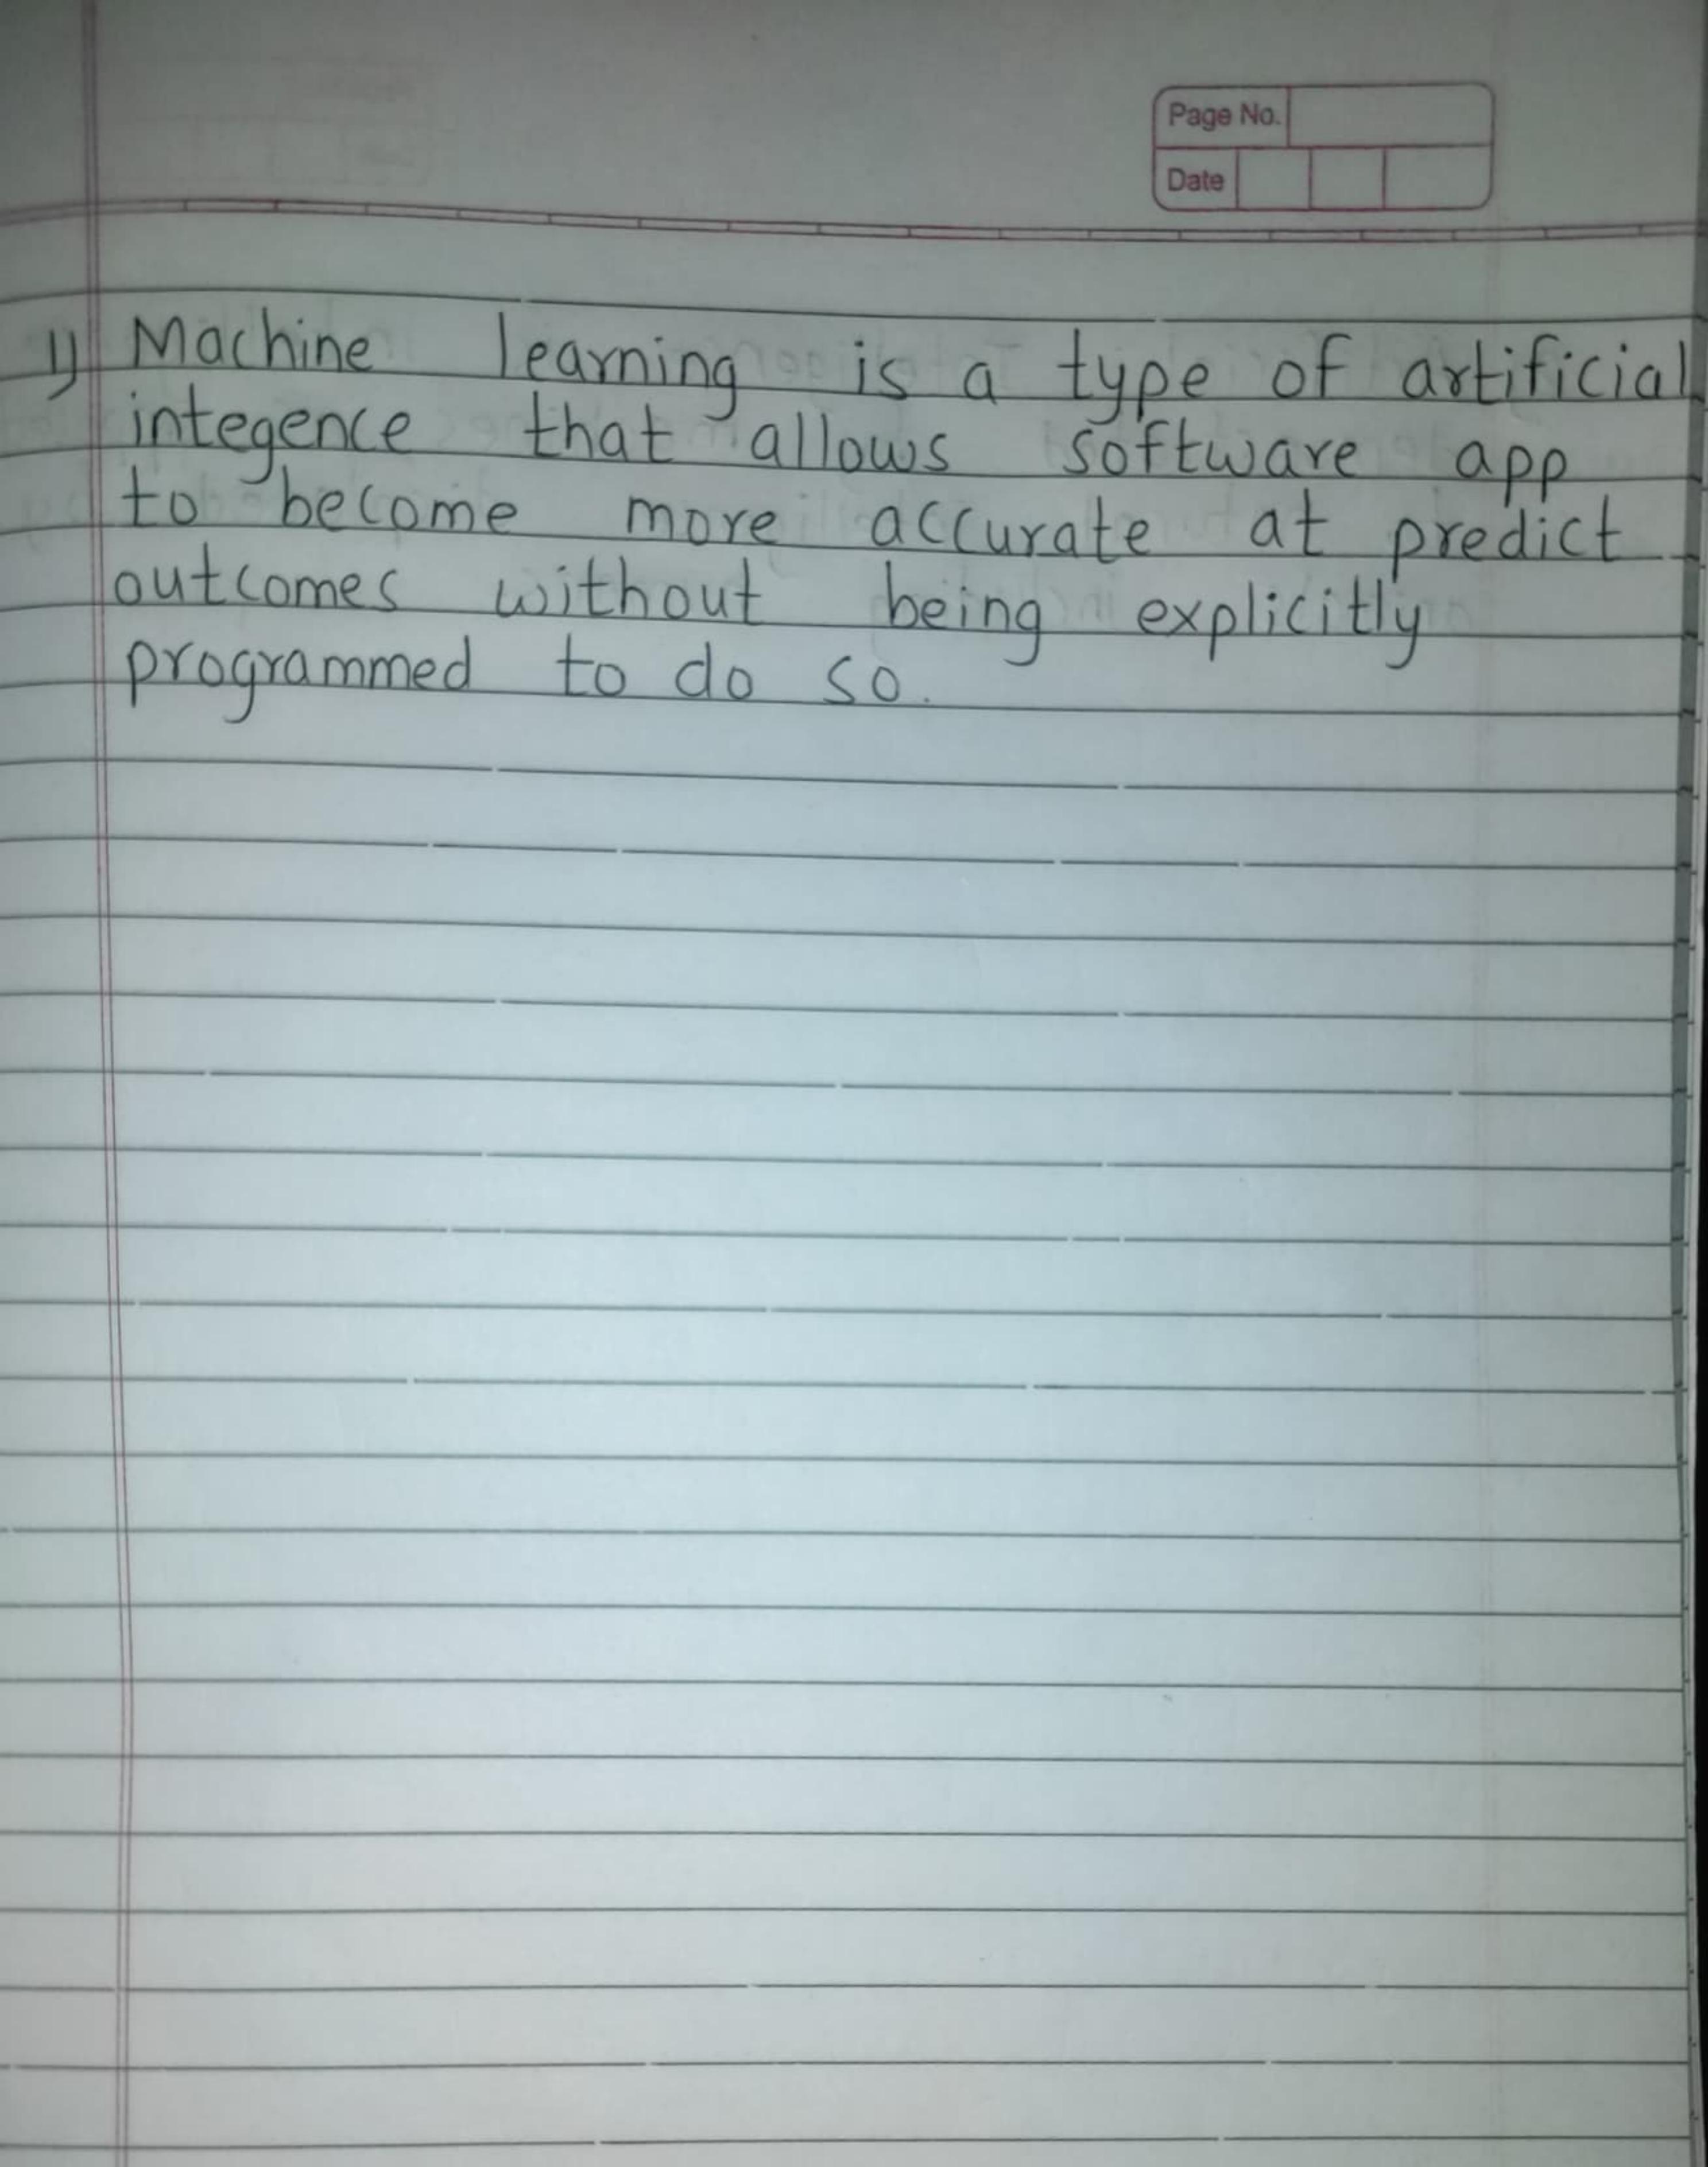 Page No.
Date
1) Machine learning is a type of artificial
integence that allows software app
to become more accurate at predict
outcomes without being explicitly
programmed to do so.